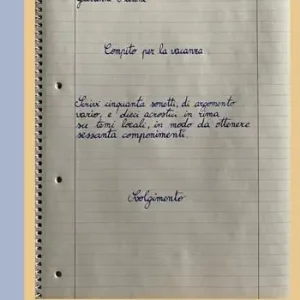 Compito per la vacanza.
Scrivi cinquanta sonetti, di argomento
vario, e dieci acrostici in rima
su temi locali, in modo da ottenere
sessanta componimenti.
Svolgimento